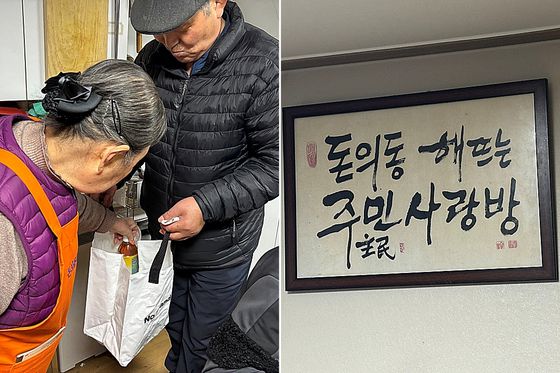 돈의동 해뜨는
주민사랑방
主民
No